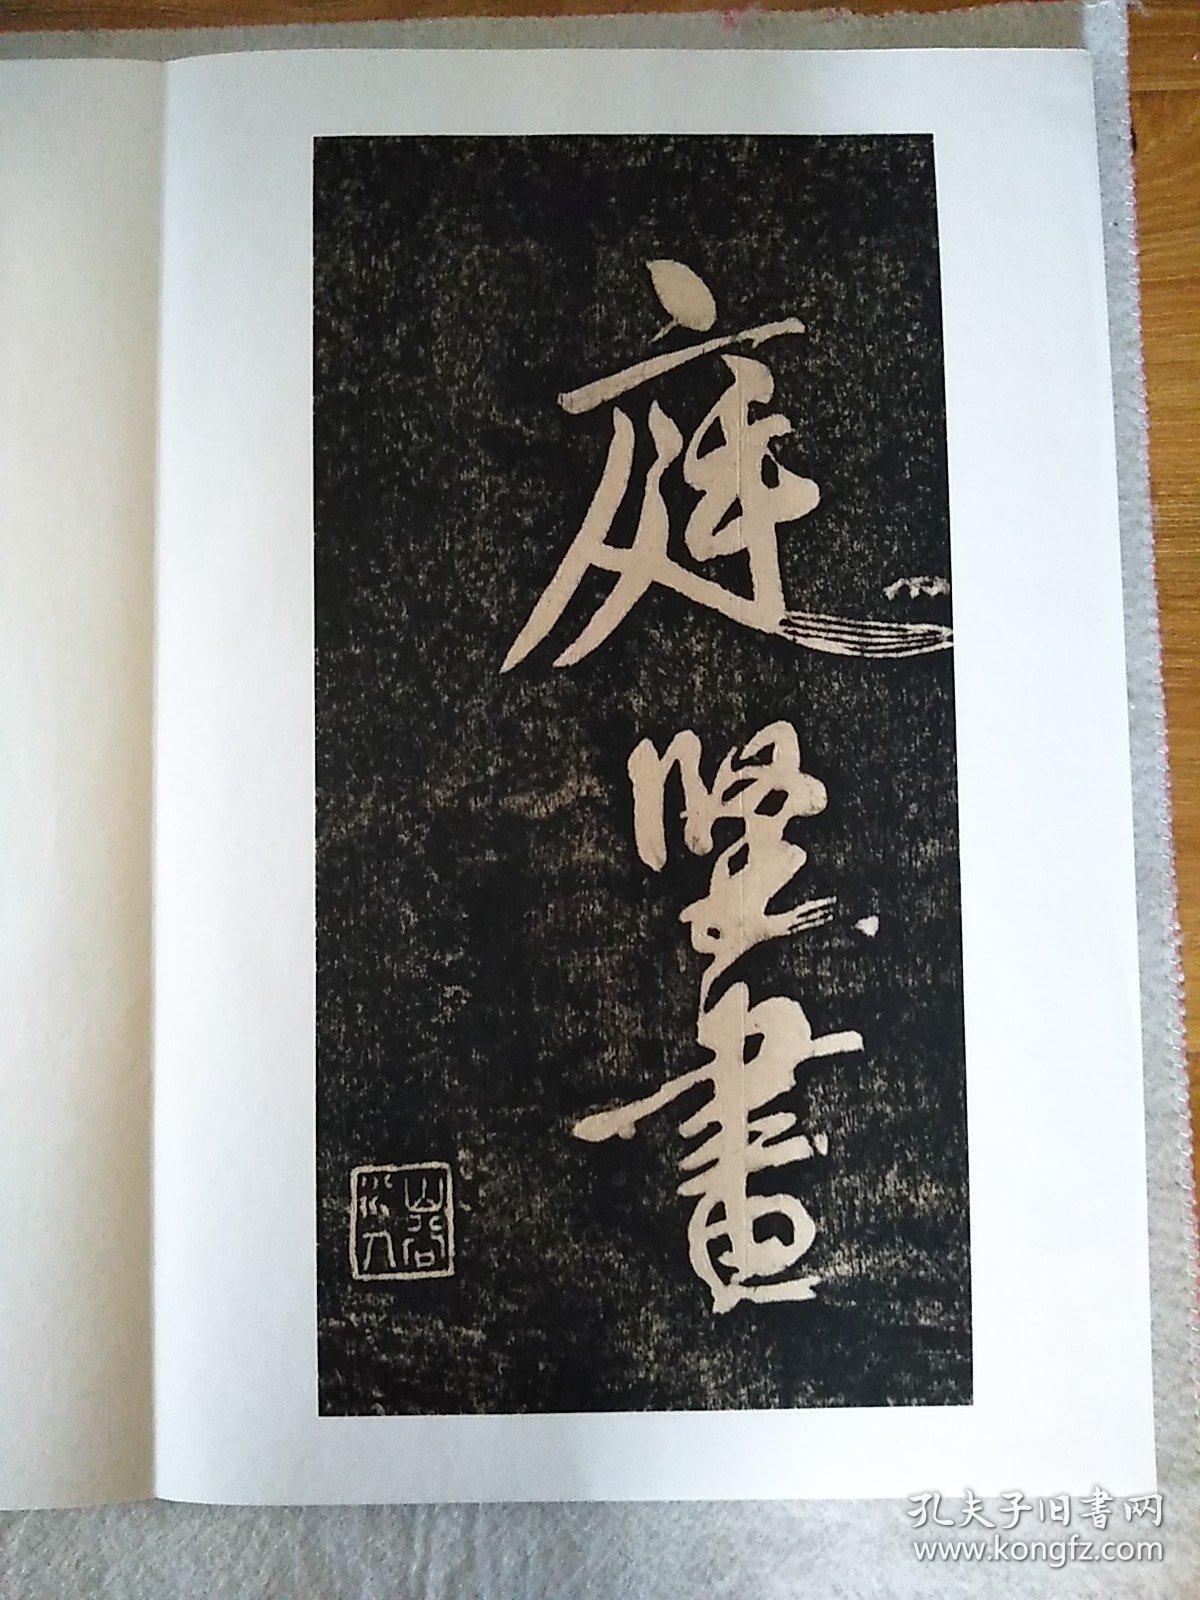 庭堅書
山谷
孔夫子旧書网
www.kongfz.com